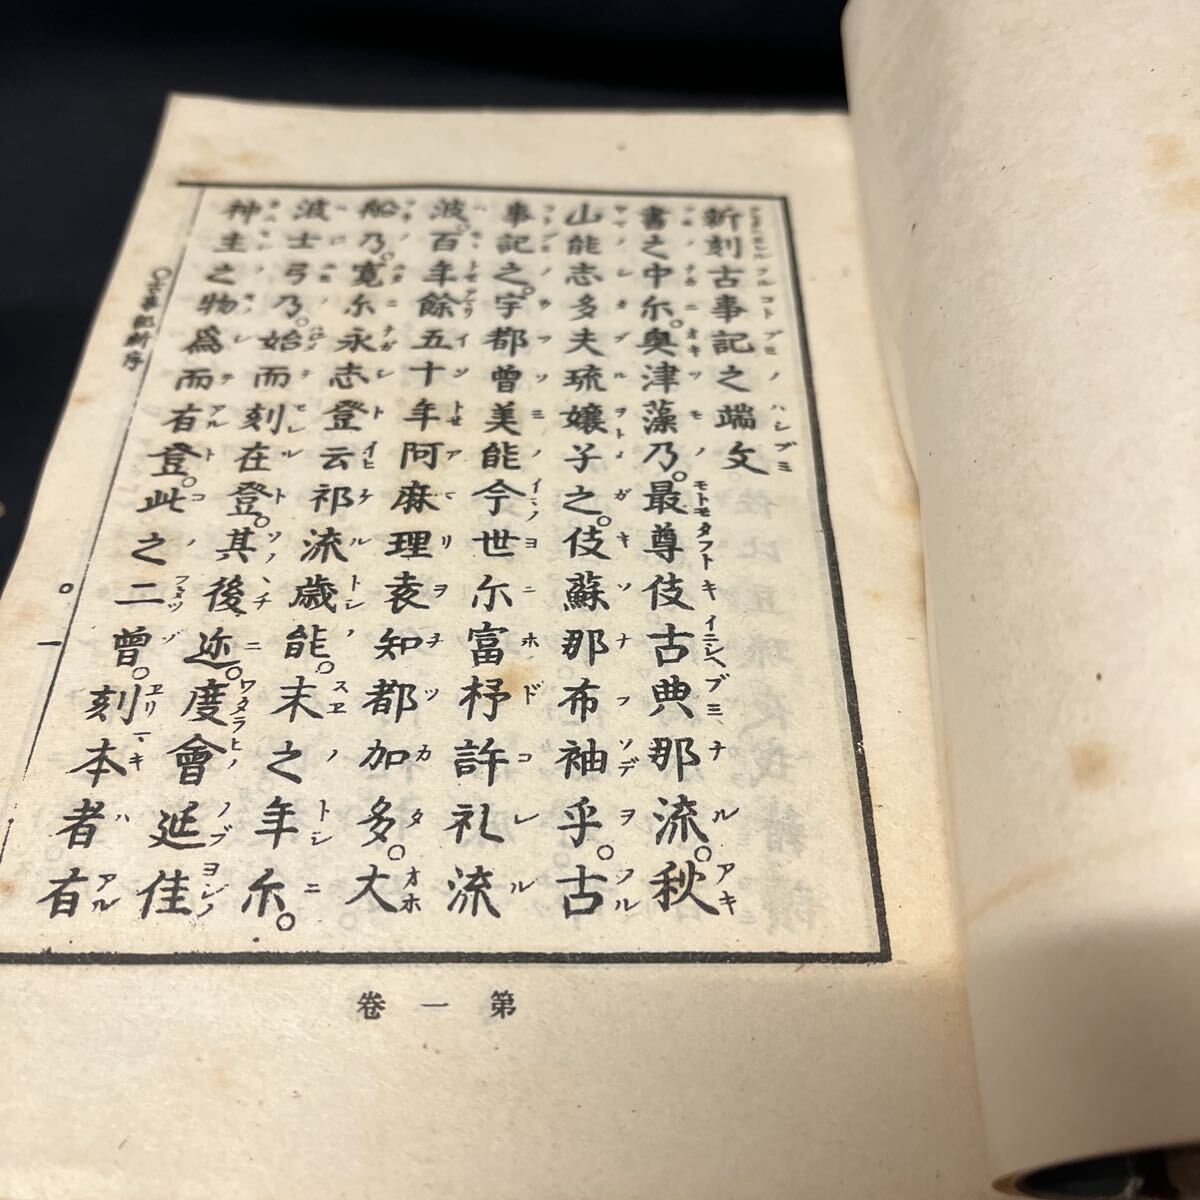 新刻古事記之端文
書之中尓。奥津藻乃。最尊伎古典那流。秋
山能志多夫琉嬢子之。伎蘇那布袖乎。古
事記之。宇都曾美能今世尓富杼許礼流
波。百年餘五十年阿麻理袁知都加多。大
船乃。寛尓永志登云祁流歳能。末之年尓。
波士弓乃。始而刻在登。其後迩。度會延佳
神主之物為而有登。此之二曾。刻本者有
〇古事記新序
○一
第一卷